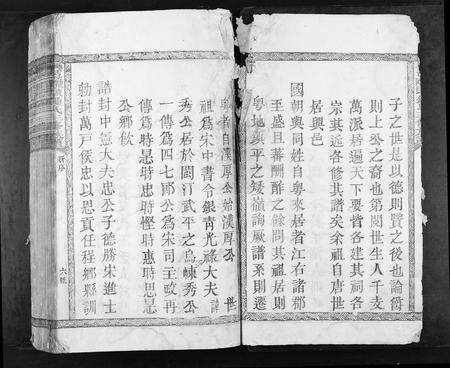 子之世是以德則賢之後也論爵
則上公之裔也第閱世生人千支
萬派居遍天下要皆各建其祠各
宗其遠各修其譜矣余祖自唐世
居興邑
國朝與同姓自粵來居者江右諸郡
至盛且蕃酬酢之餘問其祖居則
粵地鎮平之疑嶺詢厥譜系則遷
粵者自漢厚公始漢厚公 世
祖爲宋中書令銀青光祿大夫諱
秀公居於閩汀武平之烏崠秀公
一傳爲四七郎公爲宋司主政再
傳爲時昷時忠時慳時惠時思思
公鄉飲
誥封中憲大夫忠公子德勝宋進士
勅封萬戶侯忠以恩貢任程鄉縣訓
新序
六號